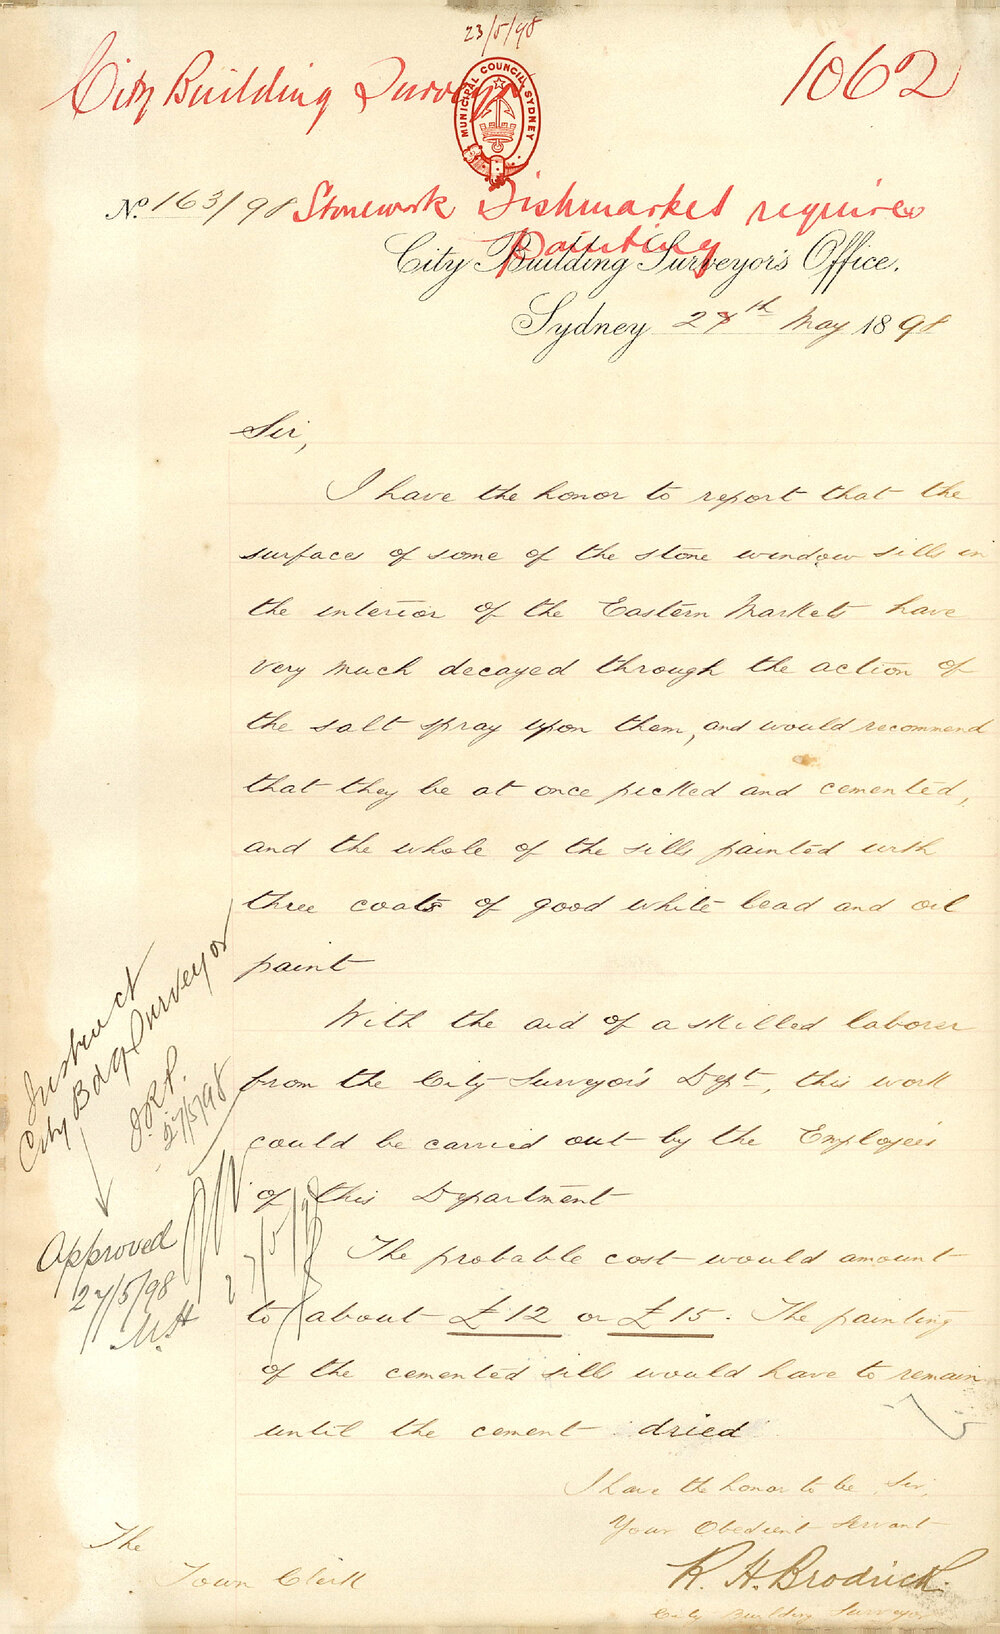 23/5/98
City Building Surveyor
1062
MUNICIPAL COUNCIL SYDNEY
No. 163/98 Stonework Fishmarket requires
Painting
City Building Surveyor's Office.
Sydney 24th May 1898
Sir,
I have the honor to report that the
surface of some of the stone window sills in
the interior of the Eastern Markets have
very much decayed through the action of
the salt spray upon them, and would recommend
that they be at once picked and cemented,
and the whole of the sills painted with
three coats of good white lead and oil
paint
With the aid of a skilled laborer
from the City Surveyor's Dept, this work
could be carried out by the Employees
of this Department
The probable cost would amount
to about £12 or £15. The painting
of the cemented sills would have to remain
until the cement dried
I have the honor to be, Sir,
Your Obedient Servant
R. H. Brodrick.
City Building Surveyor
The
Town Clerk
Instruct
City Bdg Surveyor
27/5/98
Approved
27/5/98
M.H
27/5/98